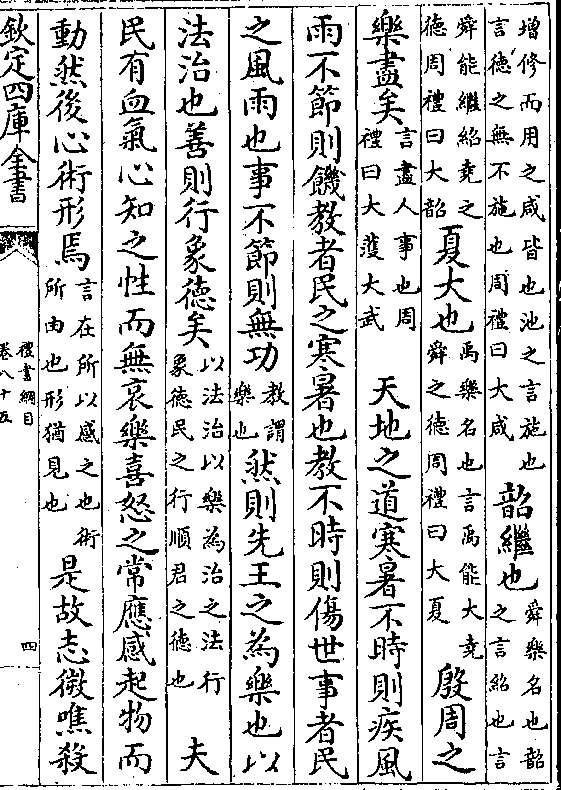 增修而用之咸皆也池之言施也
言德之無不施也周禮曰大咸
韶繼也
舜樂名也韶
之言紹也言
舜能繼紹堯之
德周禮曰大韶
夏大也
禹樂名也言禹能大堯
舜之德周禮曰大夏
殷周之
樂盡矣
言盡人事也周
禮曰大濩大武
天地之道寒暑不時則疾風
雨不節則饑教者民之寒暑也教不時則傷世事者民
之風雨也事不節則無功
教謂
樂也
然則先王之為樂也以
法治也善則行象德矣
以法治以樂為治之法行
象德民之行順君之德也
夫
民有血氣心知之性而無哀樂喜怒之常應感起物而
動然後心術形焉
言在所以感之也術
所由也形猶見也
是故志微噍殺
欽定四庫全書
禮書綱目
卷八十五
四